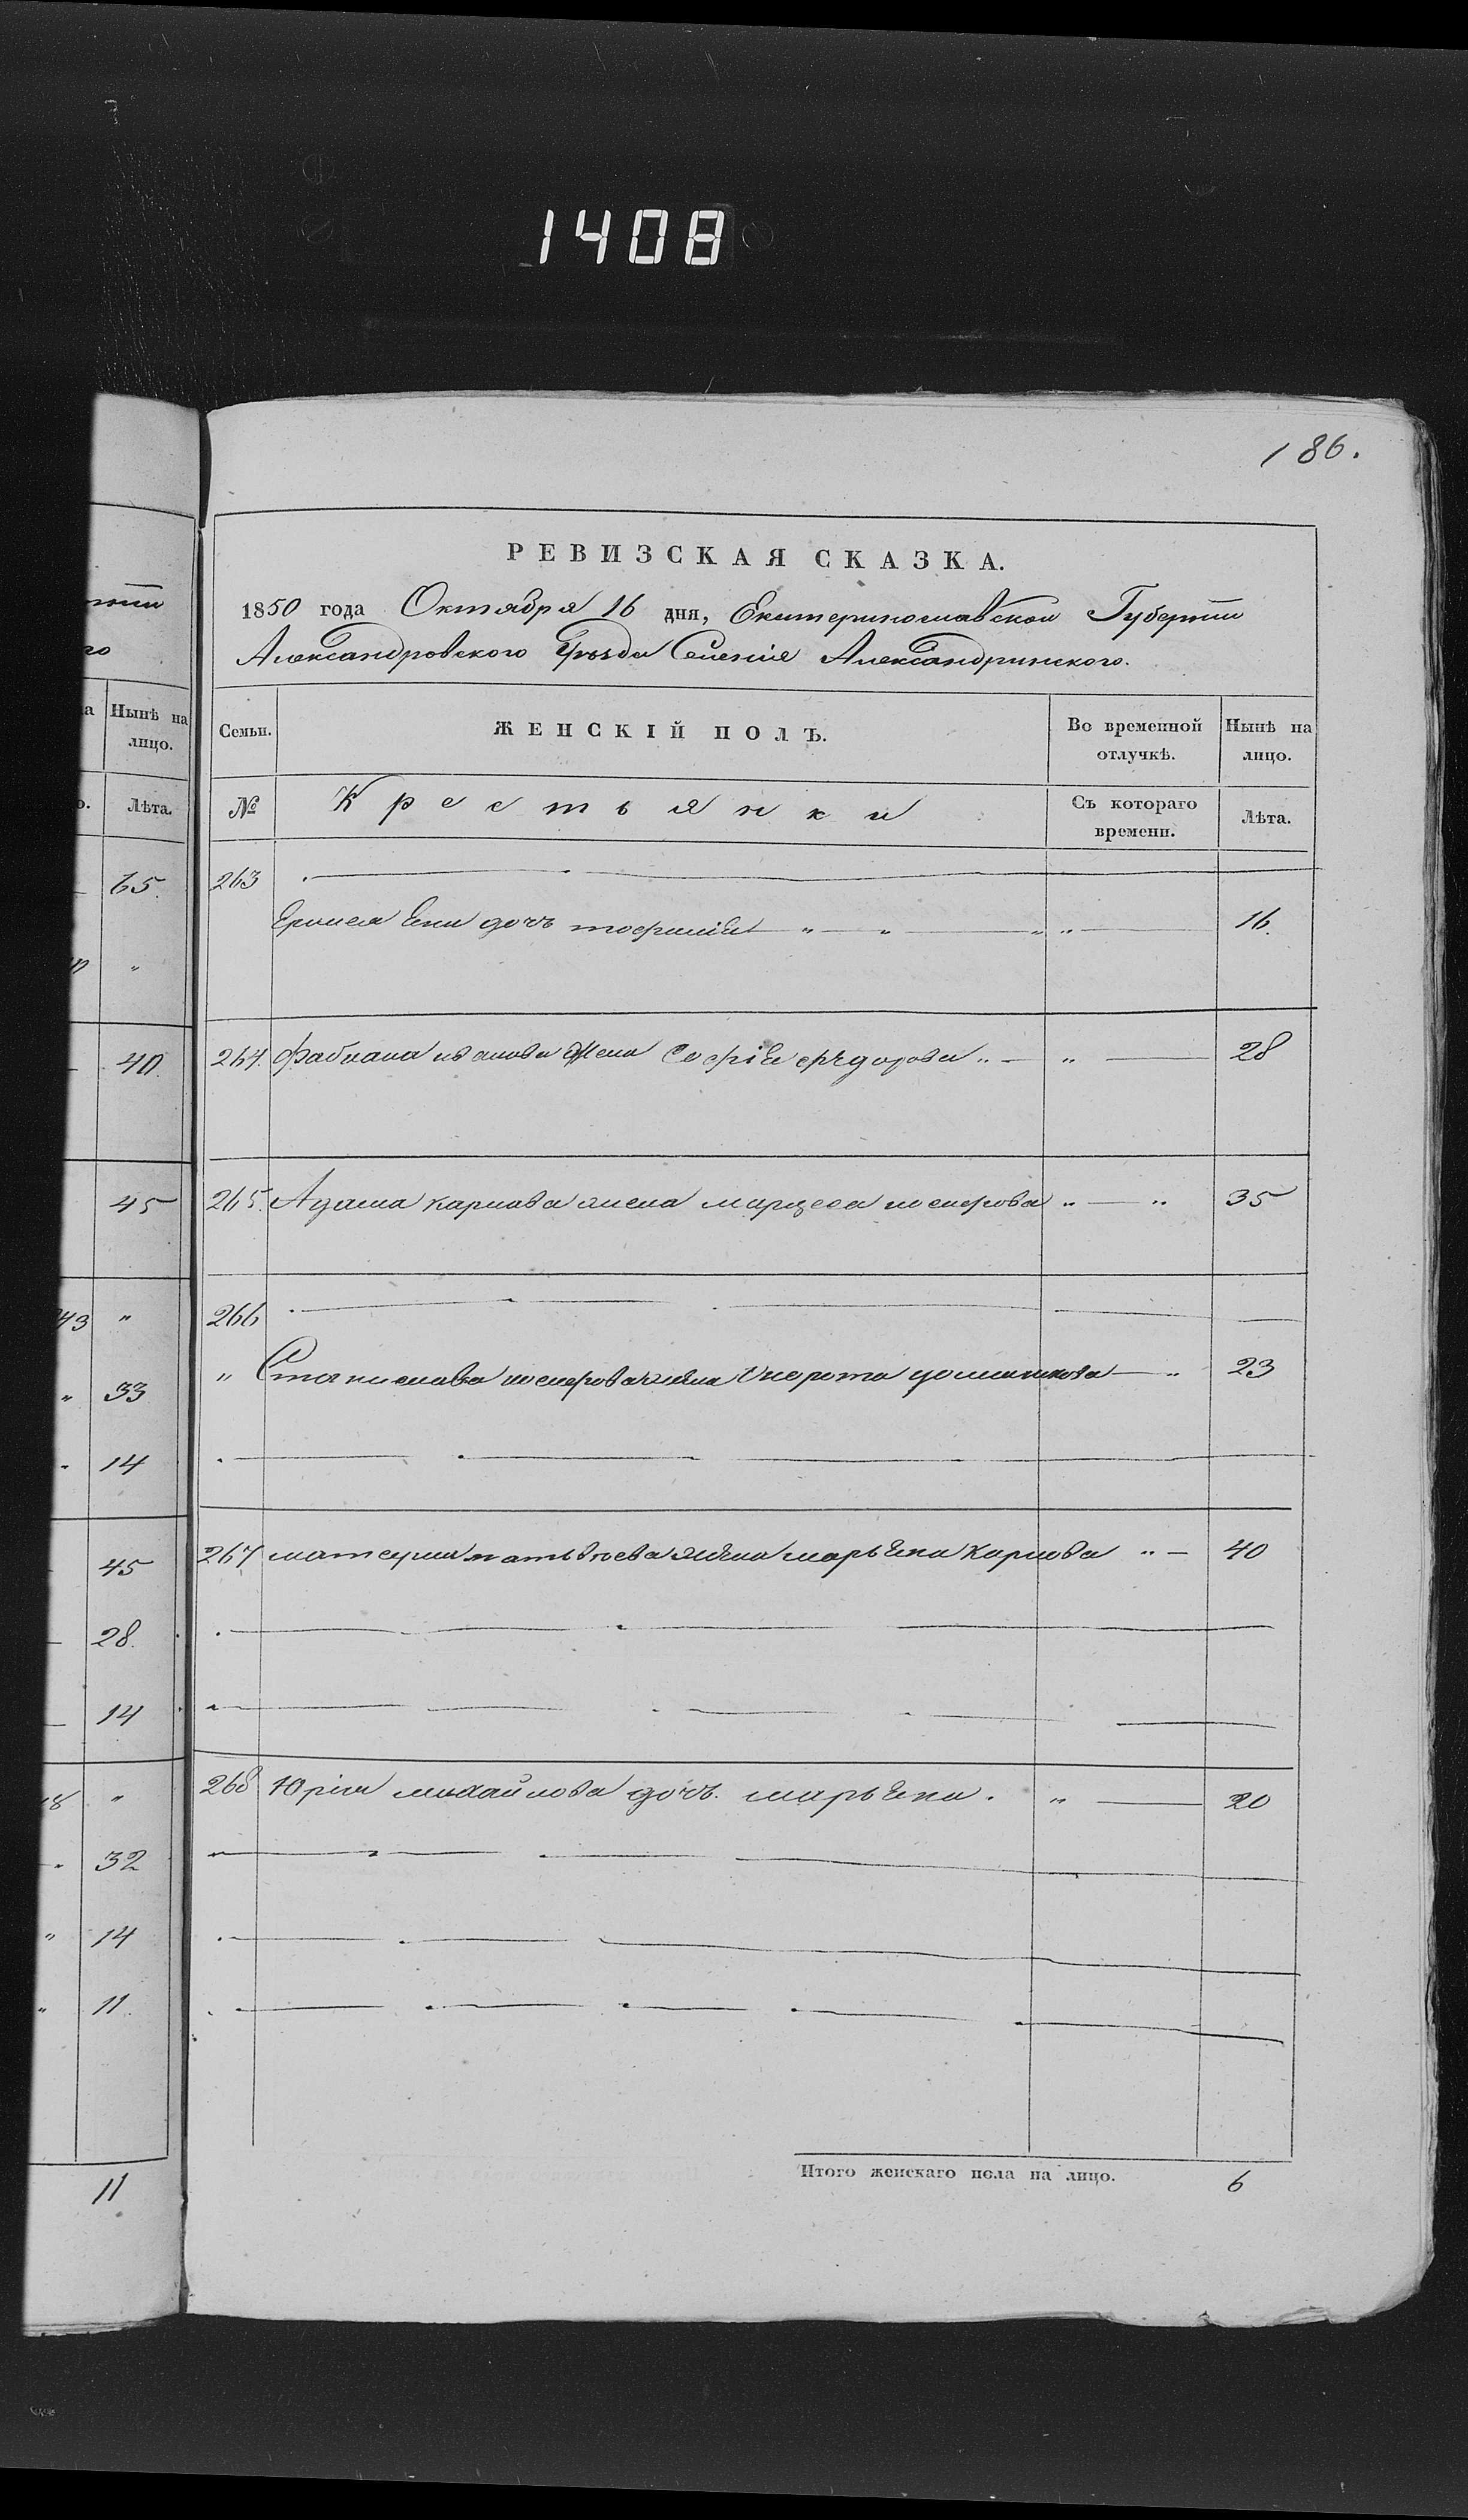 1408
186.
РЕВИЗСКАЯ СКАЗКА.
1850 года Октября 16 дня, Екатеринославской Губернии
Александровского Уѣзда Селенія Александринского.
а Нынѣ на
лицо.
Лѣта.
65.
"
40.
45
43 "
" 33
14
45
28.
14
18 "
32
" 14
" 11
11
Семьи. ЖЕНСКІЙ ПОЛЪ. Во временной отлучкѣ. Нынѣ на лицо.
№ Крестьянки Съ котораго времени. Лѣта.
263
дочь " " " " 16.
264. Фабиана иванова жена Софія " " 28
265. Адама карпова жена " " 35
266
" Станислава жена " 23
267 матеуша матвѣева жена марьяна Карпова " 40
268 Юрія михайлова дочь. марьяна. " 20
Итого женскаго пола на лицо. 6